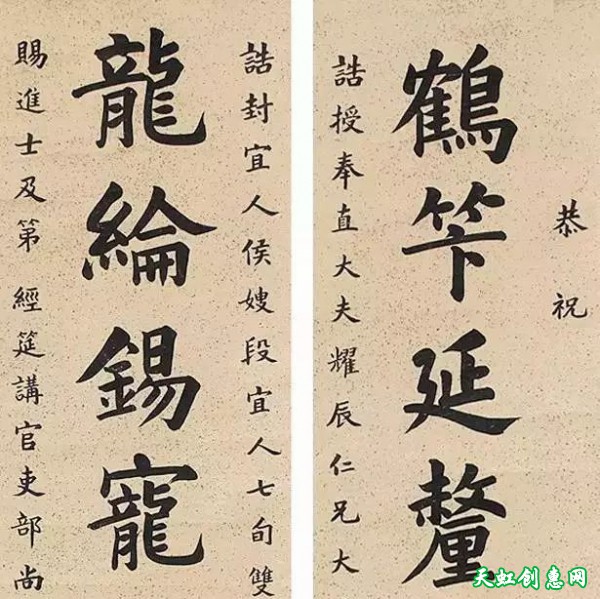 恭祝
鶴笇延釐
誥授奉直大夫耀辰仁兄大
誥封宜人侯嫂段宜人七旬雙
龍綸錫寵
賜進士及第經筵講官吏部尚
天虹创惠网